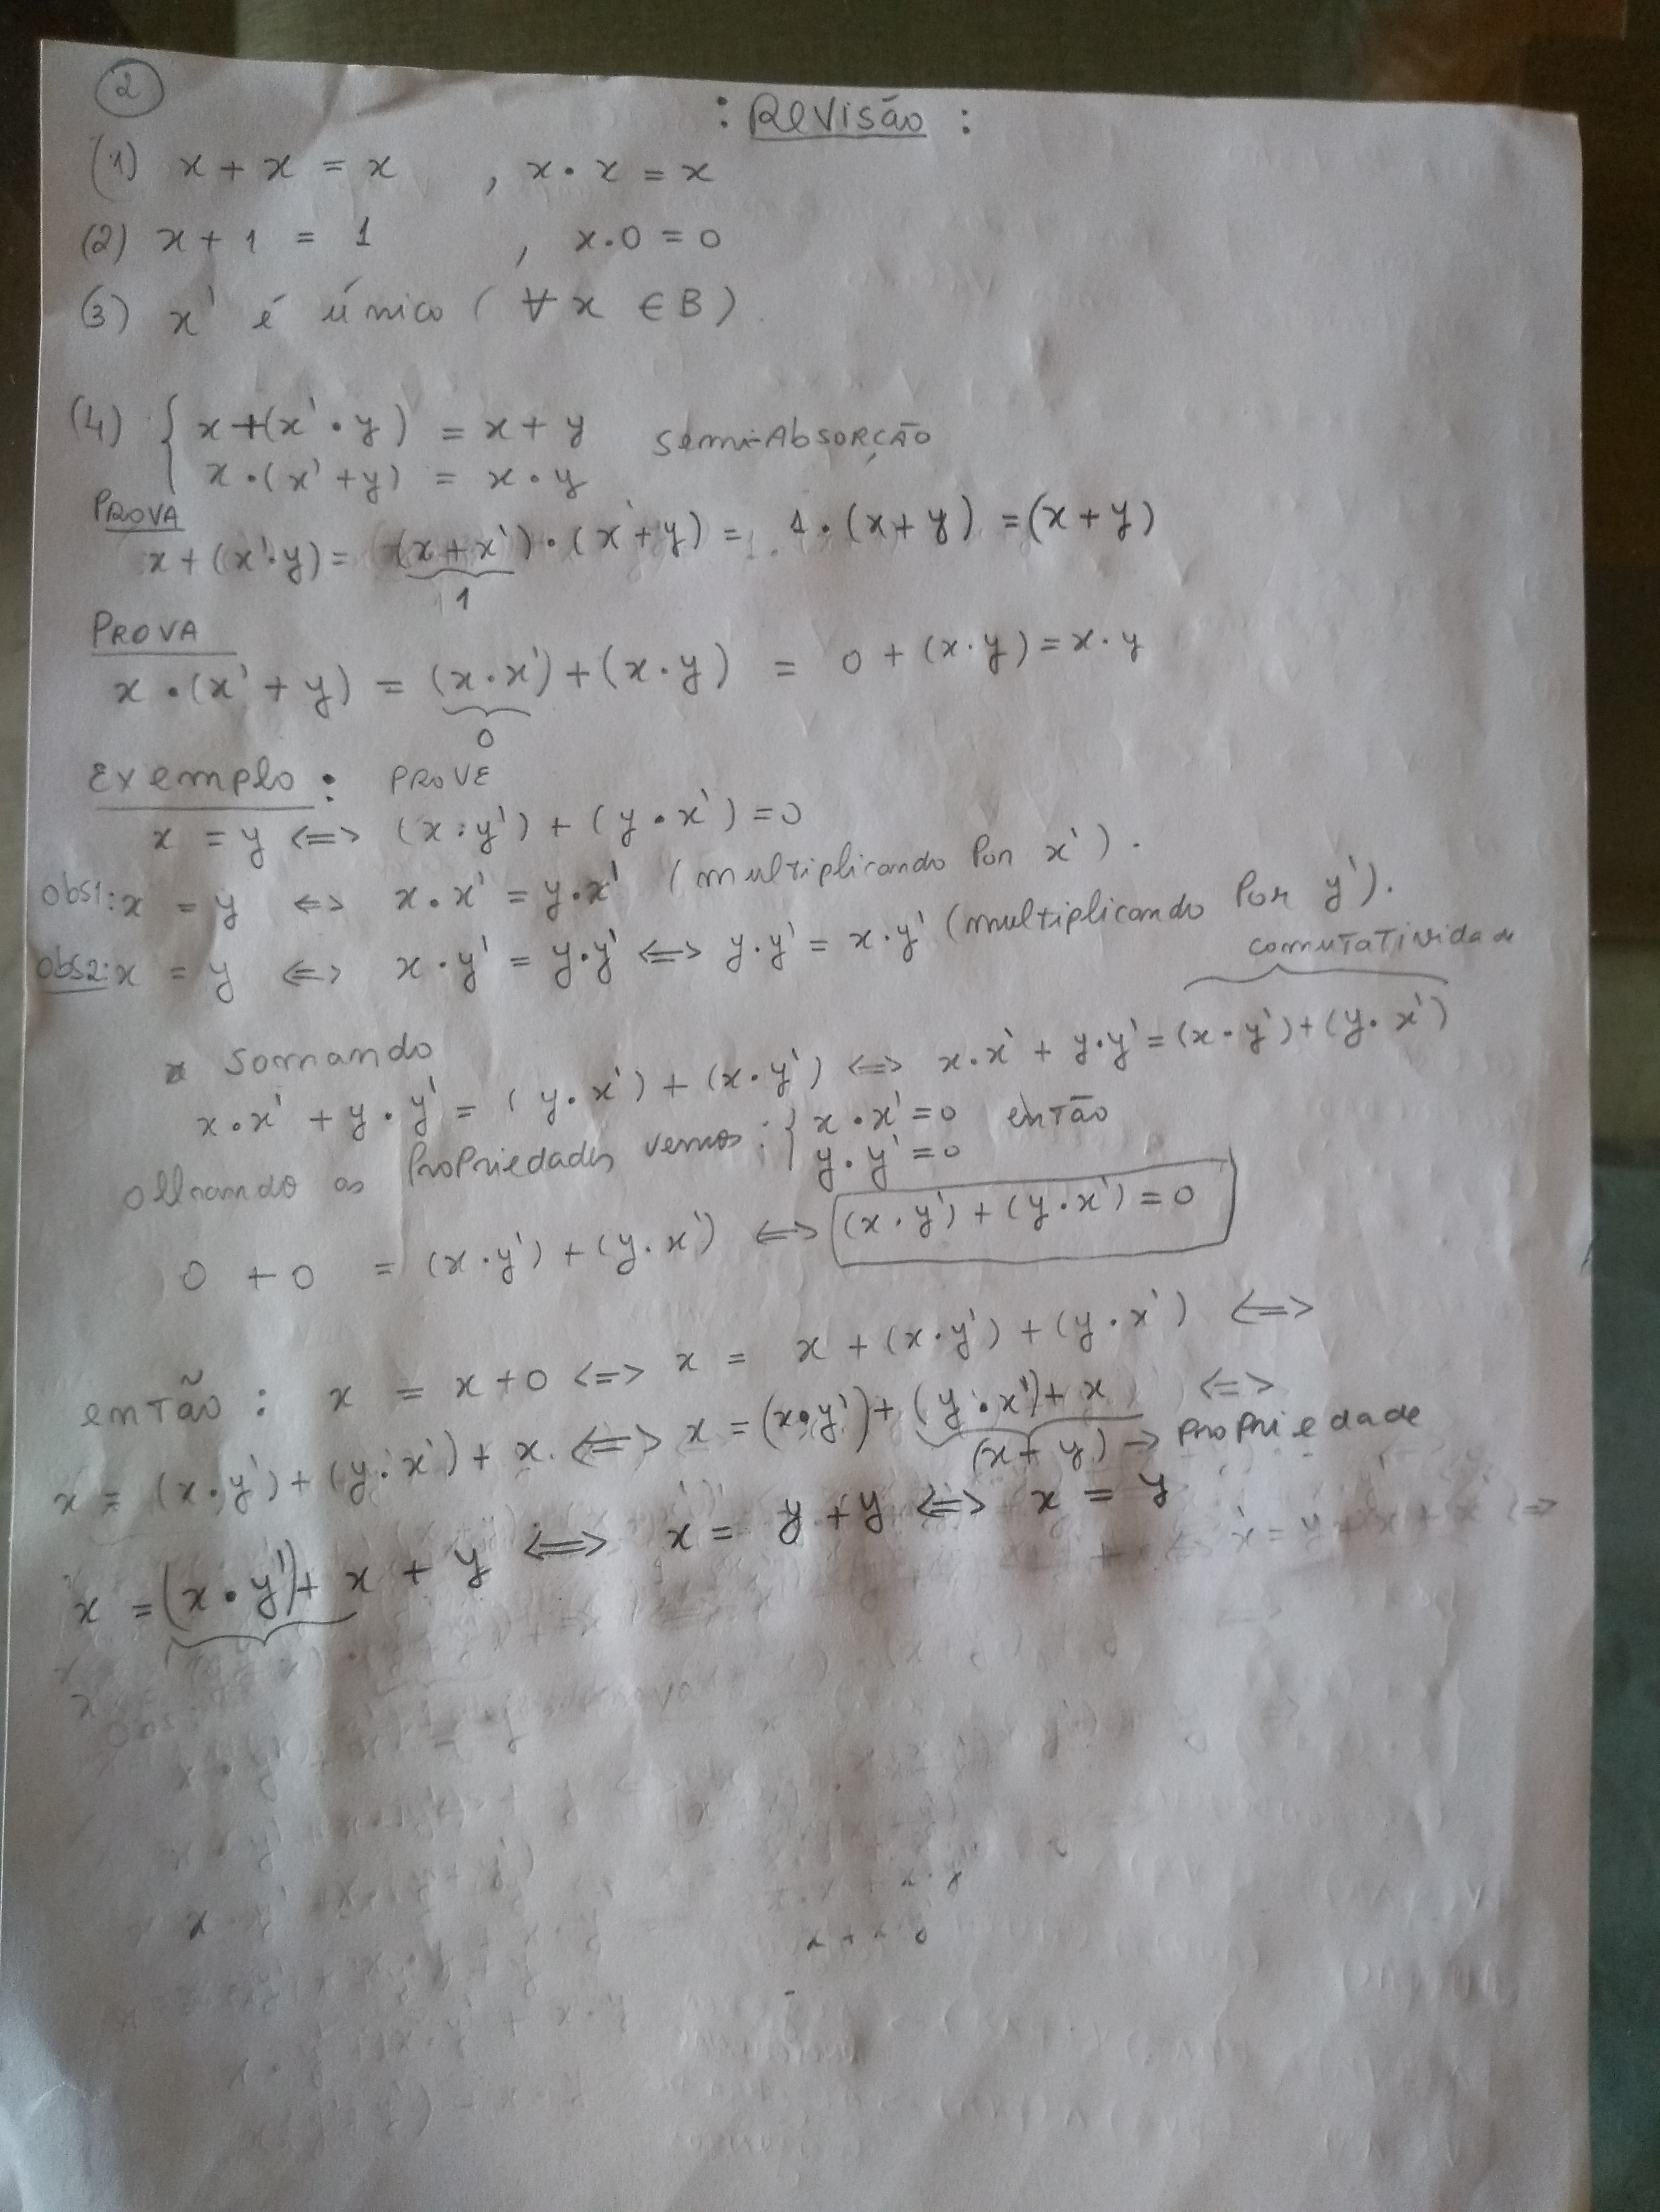 2
: Revisão :
(1) x + x = x , x · x = x
(2) x + 1 = 1 , x · 0 = 0
(3) x' é único ( ∀ x ∈ B )
(4) { x + (x' · y) = x + y
x · (x' + y) = x · y
Semi-Absorção
PROVA
x + (x' · y) = (x + x') · (x + y) = 1 · (x + y) = (x + y)
1
PROVA
x · (x' + y) = (x · x') + (x · y) = 0 + (x · y) = x · y
0
Exemplo : PROVE
x = y <=> (x · y') + (y · x') = 0
obs1: x = y <=> x · x' = y · x' (multiplicando Por x').
obs2: x = y <=> x · y' = y · y' <=> y · y' = x · y' (multiplicando Por y').
comutatividade
Somando
x · x' + y · y' = (y · x') + (x · y') <=> x · x' + y · y' = (x · y') + (y · x')
olhando as Propriedades vemos : { x · x' = 0 então
y · y' = 0
0 + 0 = (x · y') + (y · x') <=> (x · y') + (y · x') = 0
então : x = x + 0 <=> x = x + (x · y') + (y · x') <=>
x = (x · y') + (y · x') + x <=> x = (x · y') + (y · x') + x <=>
(x + y) → Propriedade
x = (x · y') + x + y <=> x = y + y <=> x = y